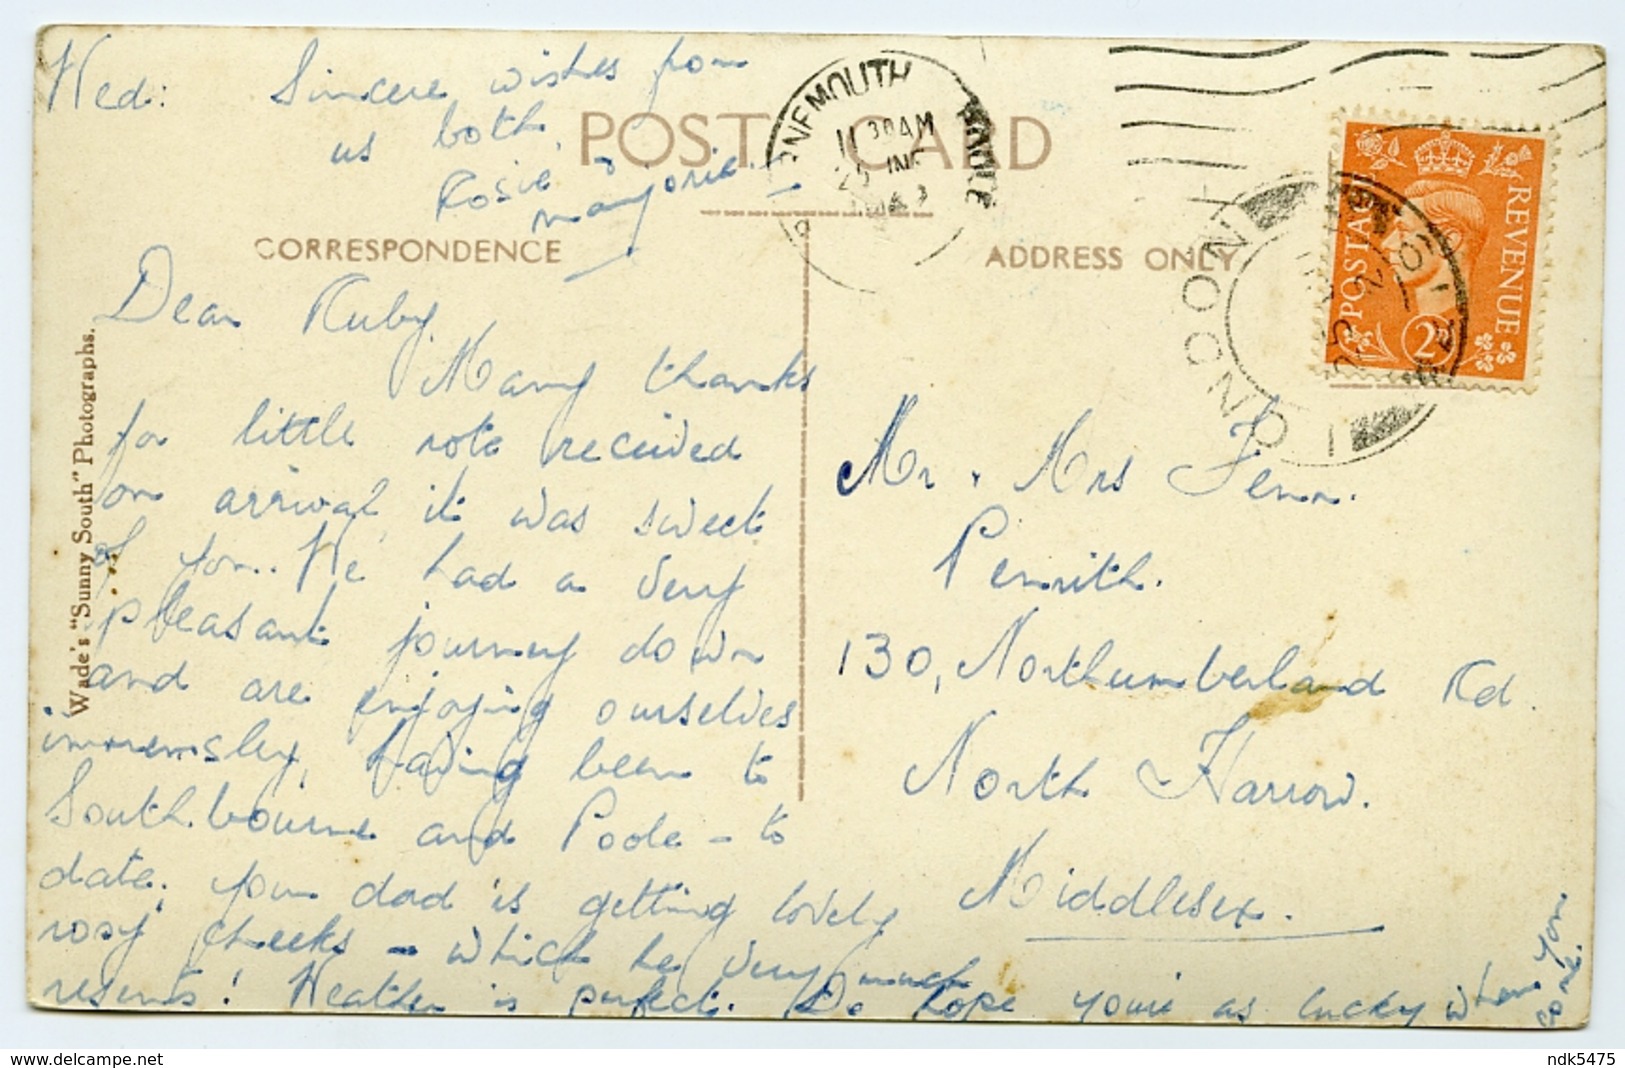 Wed: Sincere wishes from
us both,
Rosie &
Marjorie.
POST CARD
CORRESPONDENCE
ADDRESS ONLY
Wade's "Sunny South" Photographs.
Dear Ruby,
Many thanks
for little note received
on arrival, it was sweet
of you. We had a very
pleasant journey down
and are enjoying ourselves
immensley, having been to
Southbourne and Poole - to
date, your dad is getting lovely
rosy cheeks - which he very much
resents! Weather is perfect. Do hope you're as lucky when you
come.
Mr & Mrs Fenn.
Penrith.
130, Northumberland Rd.
North Harrow.
Middlesex.
RNEMOUTH
POOLE
11 30AM
LONDON
POSTAGE
REVENUE
2D
ndk5475